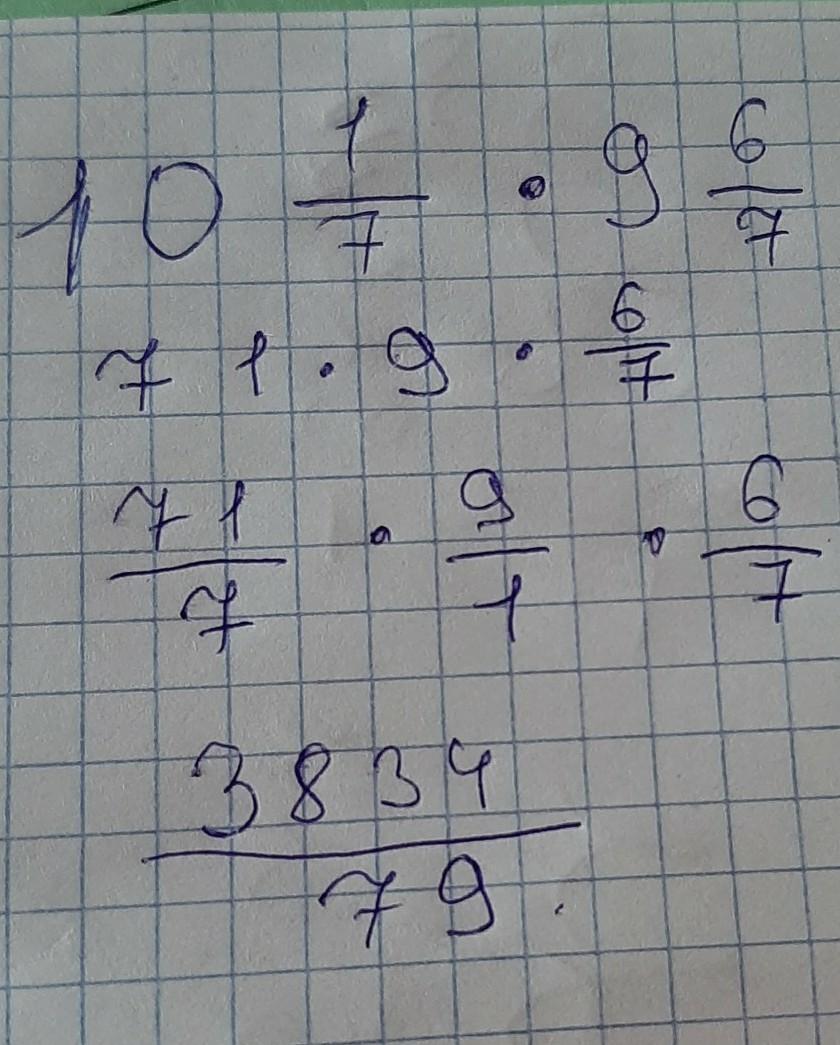 10 1/7 · 9 6/7
71 · 9 · 6/7
71/7 · 9/1 · 6/7
3834/79.